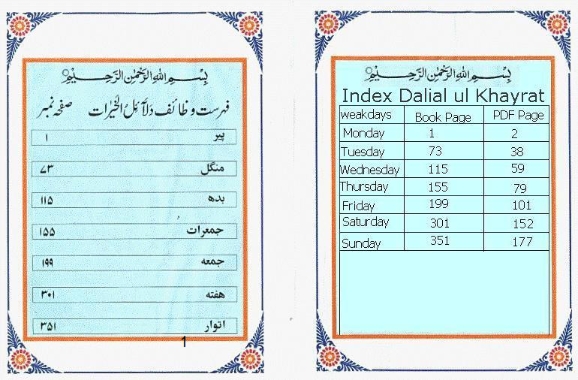 بِسْمِ اللهِ الرَّحْمٰنِ الرَّحِيْمِ
فہرست وظائف دلآئل الخیرات صفحہ نمبر
پیر ۱
منگل ۷۳
بدھ ۱۱۵
جمعرات ۱۵۵
جمعہ ۱۹۹
ہفتہ ۳۰۱
اتوار ۳۵۱
1
بِسْمِ اللهِ الرَّحْمٰنِ الرَّحِيْمِ
Index Dalial ul Khayrat
weakdays Book Page PDF Page
Monday 1 2
Tuesday 73 38
Wednesday 115 59
Thursday 155 79
Friday 199 101
Saturday 301 152
Sunday 351 177